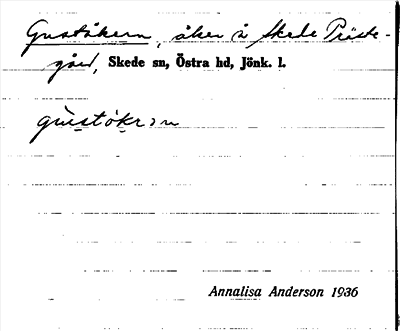 Guståkern, åker å Skede Präste-
gård, Skede sn, Östra hd, Jönk. l.
gustókrɔn
Annalisa Anderson 1936